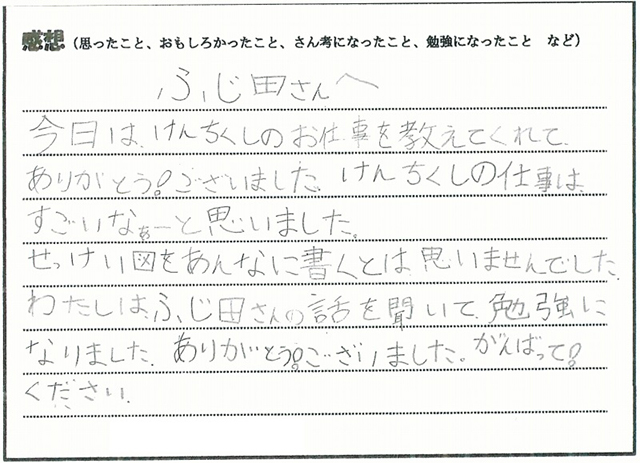 感想（思ったこと、おもしろかったこと、さん考になったこと、勉強になったこと　など）
ふじ田さんへ
今日は、けんちくしのお仕事を教えてくれて、
ありがとう!ございました。けんちくしの仕事は、
すごいなぁーと思いました。
せっけい図をあんなに書くとは思いませんでした。
わたしは、ふじ田さんの話を聞いて、勉強に
なりました。ありがとう!ございました。がんばって!
ください。